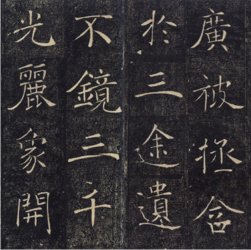 廣被拯含
扵三途遺
不鏡三千
光麗象開